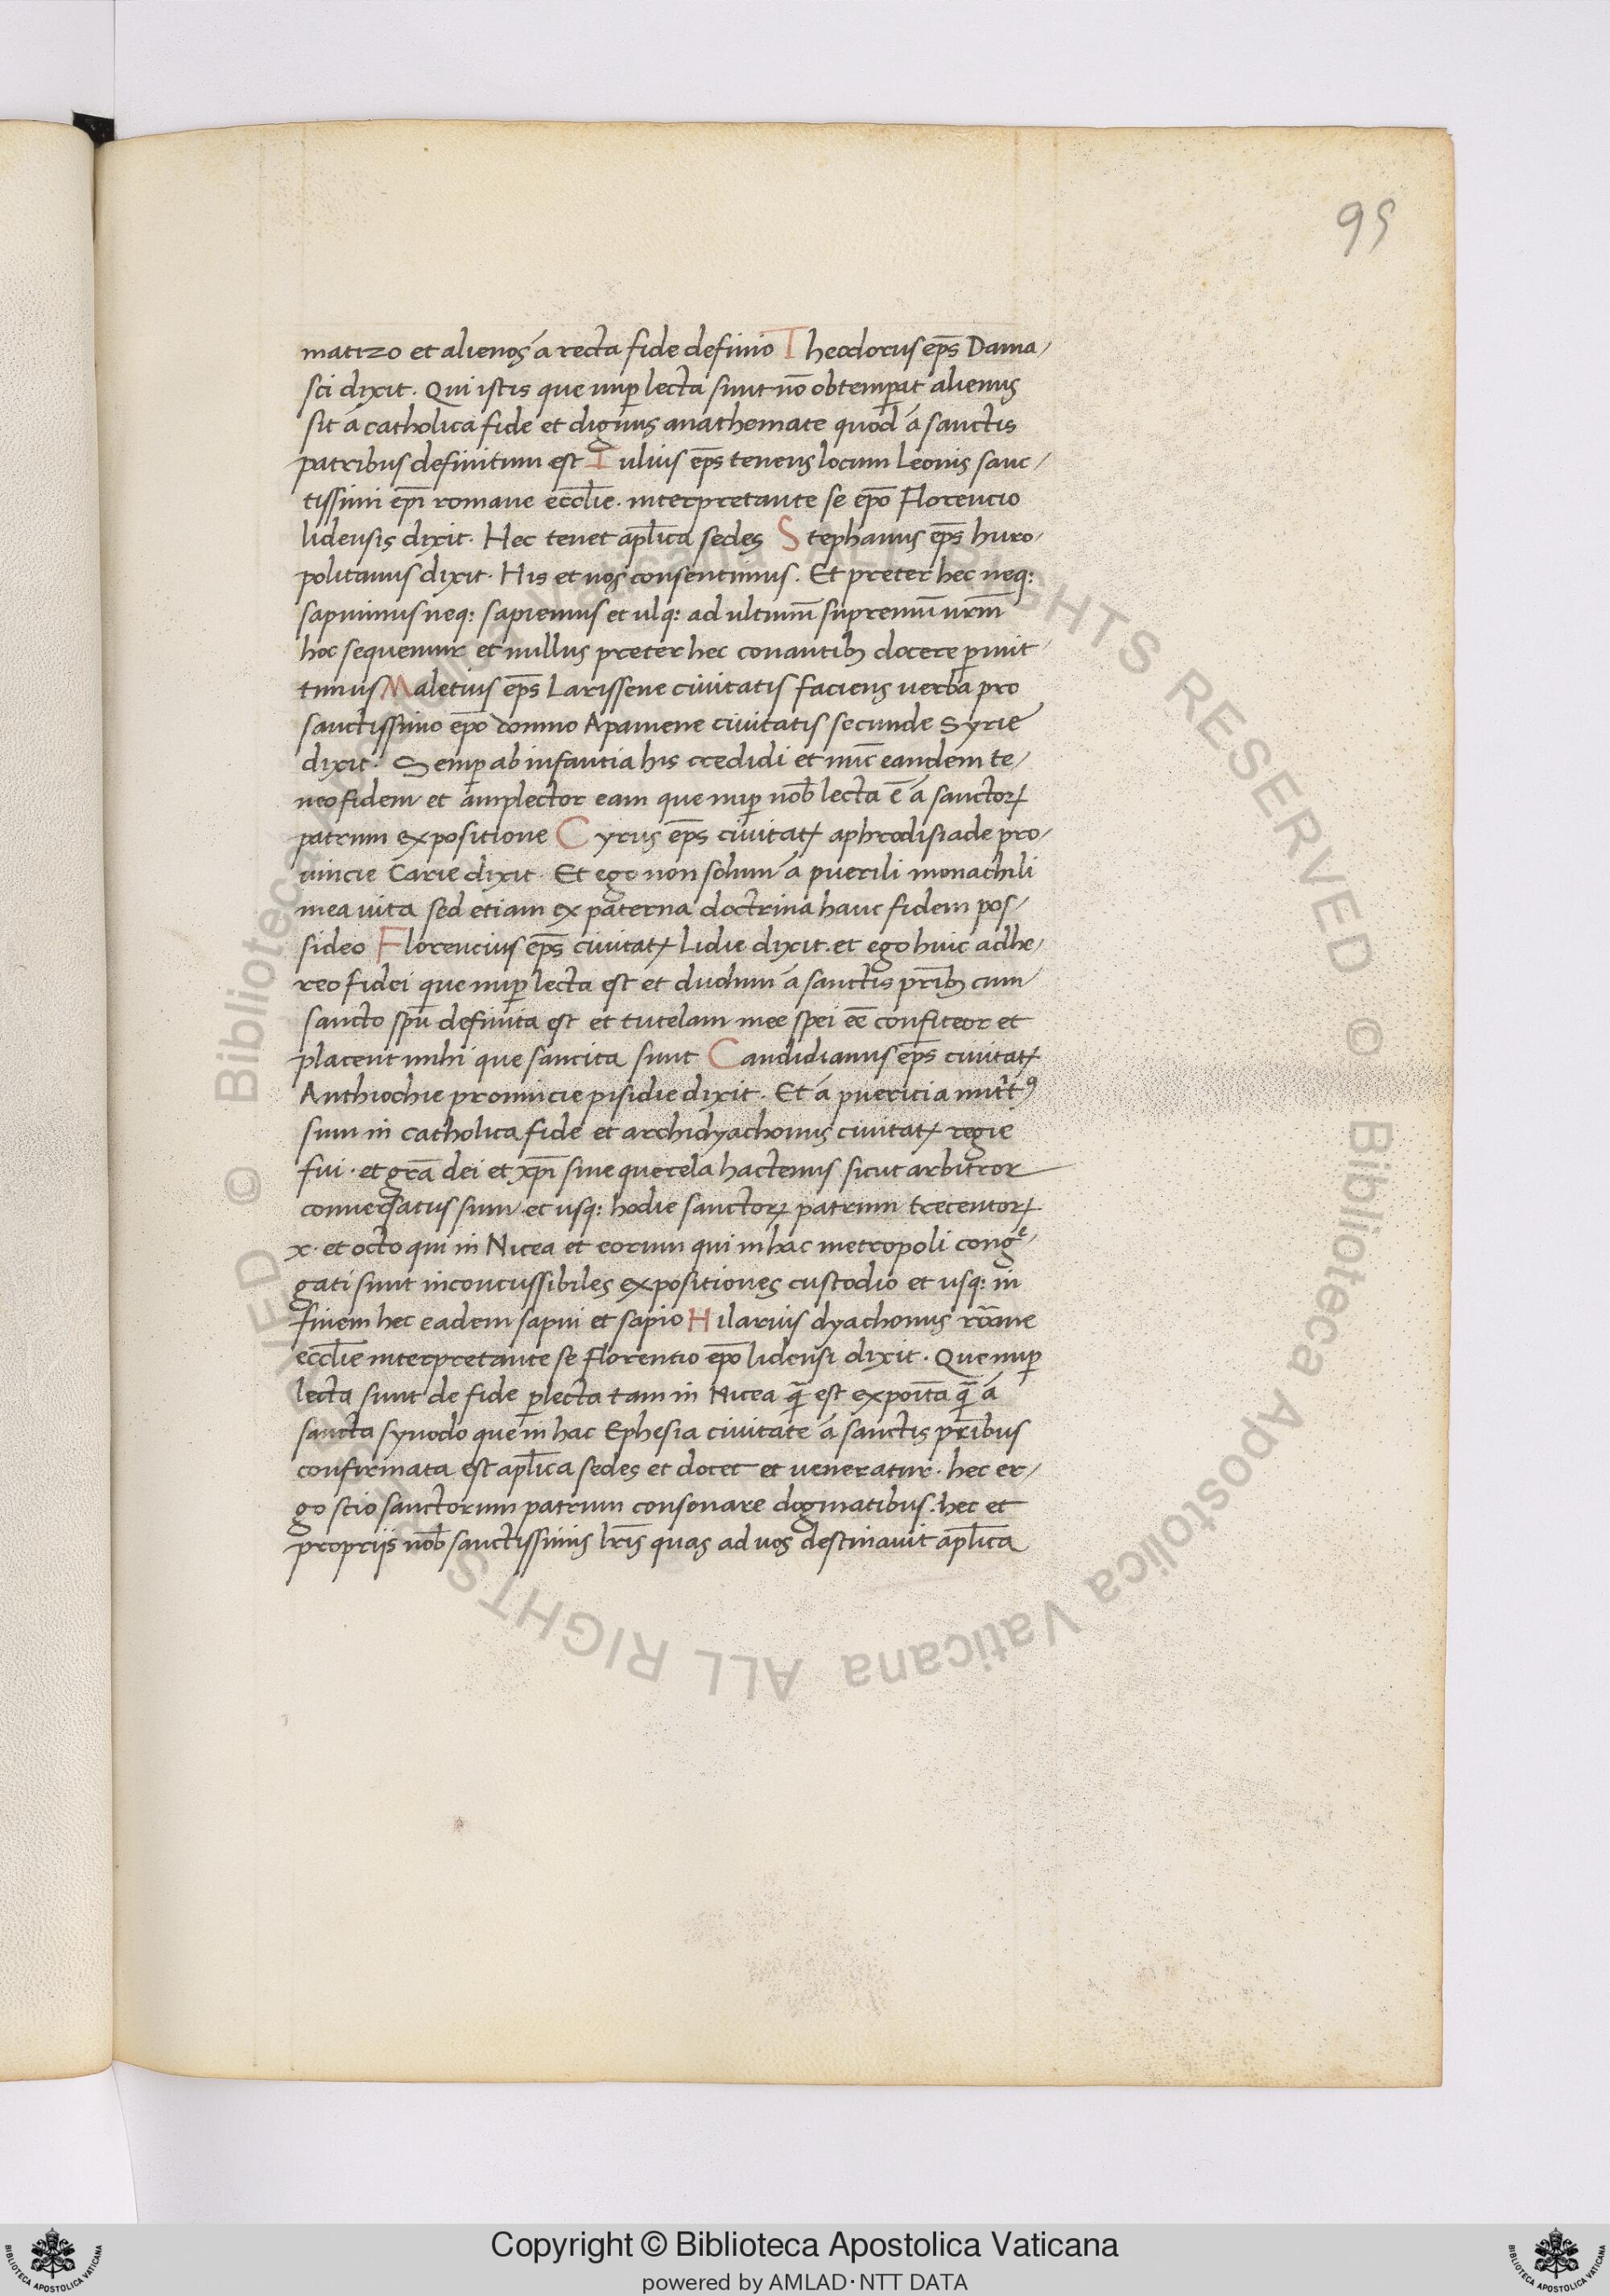 95
matizo et alienos á recta fide definio Theodorus ep̄s Dama/
sci dixit. Qui istis que nuꝑ lecta sunt nō obtemꝑat alienus
sit á catholica fide et dignus anathemate quod á sanctis
patribus definitum est Iulius ep̄s tenens locum Leonis sanc/
tissimi ep̄i romane eccl̄ie. interpretante se ep̄o Florencio
lidensis dixit. Hec tenet apl̄ica sedes Stephanus ep̄s huro/
politanus dixit. His et nos consentimus. Et preter hec neq:
sapuimus neq: sapiemus et usq: ad ultimū supremū nr̄m
hoc sequemur et nullus preter hec conantibꝫ docere ꝑmit/
timus Maletius ep̄s Larissene civitatis faciens verba pro
sanctissimo ep̄o domno Apamene civitatis secunde Syrie
dixit. Semꝑ ab infantia his credidi et nūc eandem te/
neo fidem et amplector eam que nuꝑ nob̄ lecta ē á sanctoꝝ
patrum expositione Cyrus ep̄s civitatꝭ aphrodisiade pro/
uincie Carie dixit. Et ego non solum á puerili monachili
mea uita sed etiam ex paterna doctrina hanc fidem pos/
sideo Florencius ep̄s civitatꝭ Lidie dixit. et ego huic adhe/
reo fidei que nuꝑ lecta est et dudum á sanctis pr̄ibꝫ cum
sancto spū definita est et tutelam mee spei eē confiteor et
placent mihi que sancita sunt Candidianus ep̄s civitatꝭ
Anthiochie prouincie pisidie dixit. Et á puericia nutᵗꝰ
sum in catholica fide et archidyachonus civitatꝭ regie
fui. et grā dei et xp̄i sine querela hactenus sicut arbitror
conversatus sum et usq: hodie sanctoꝝ patrum trecentoꝝ
x. et octo qui in Nicea et eorum qui in hac metropoli congͤ/
gati sunt inconcussibiles expositiones custodio et usq: in
finem hec eadem sapui et sapio Hilarius dyachonus rōane
eccl̄ie interpretante se Florentio ep̄o lidensi dixit. Que nuꝑ
lecta sunt de fide ꝑlecta tam in Nicea q̄ est expoīta q̄ á
sancta synodo que in hac Ephesia civitate á sanctis pr̄ibus
confirmata est apl̄ica sedes et docet et veneratur. hec er/
go scio sanctorum patrum consonare dogmatibus. hec et
propriis nob̄ sanctissimis lr̄is quas ad vos destinavit apl̄ica
© Biblioteca Apostolica Vaticana ALL RIGHTS RESERVED © Biblioteca Apostolica Vaticana ALL RIGHTS RESERVED
Copyright © Biblioteca Apostolica Vaticana
powered by AMLAD·NTT DATA
BIBLIOTECA APOSTOLICA VATICANA
BIBLIOTECA APOSTOLICA VATICANA